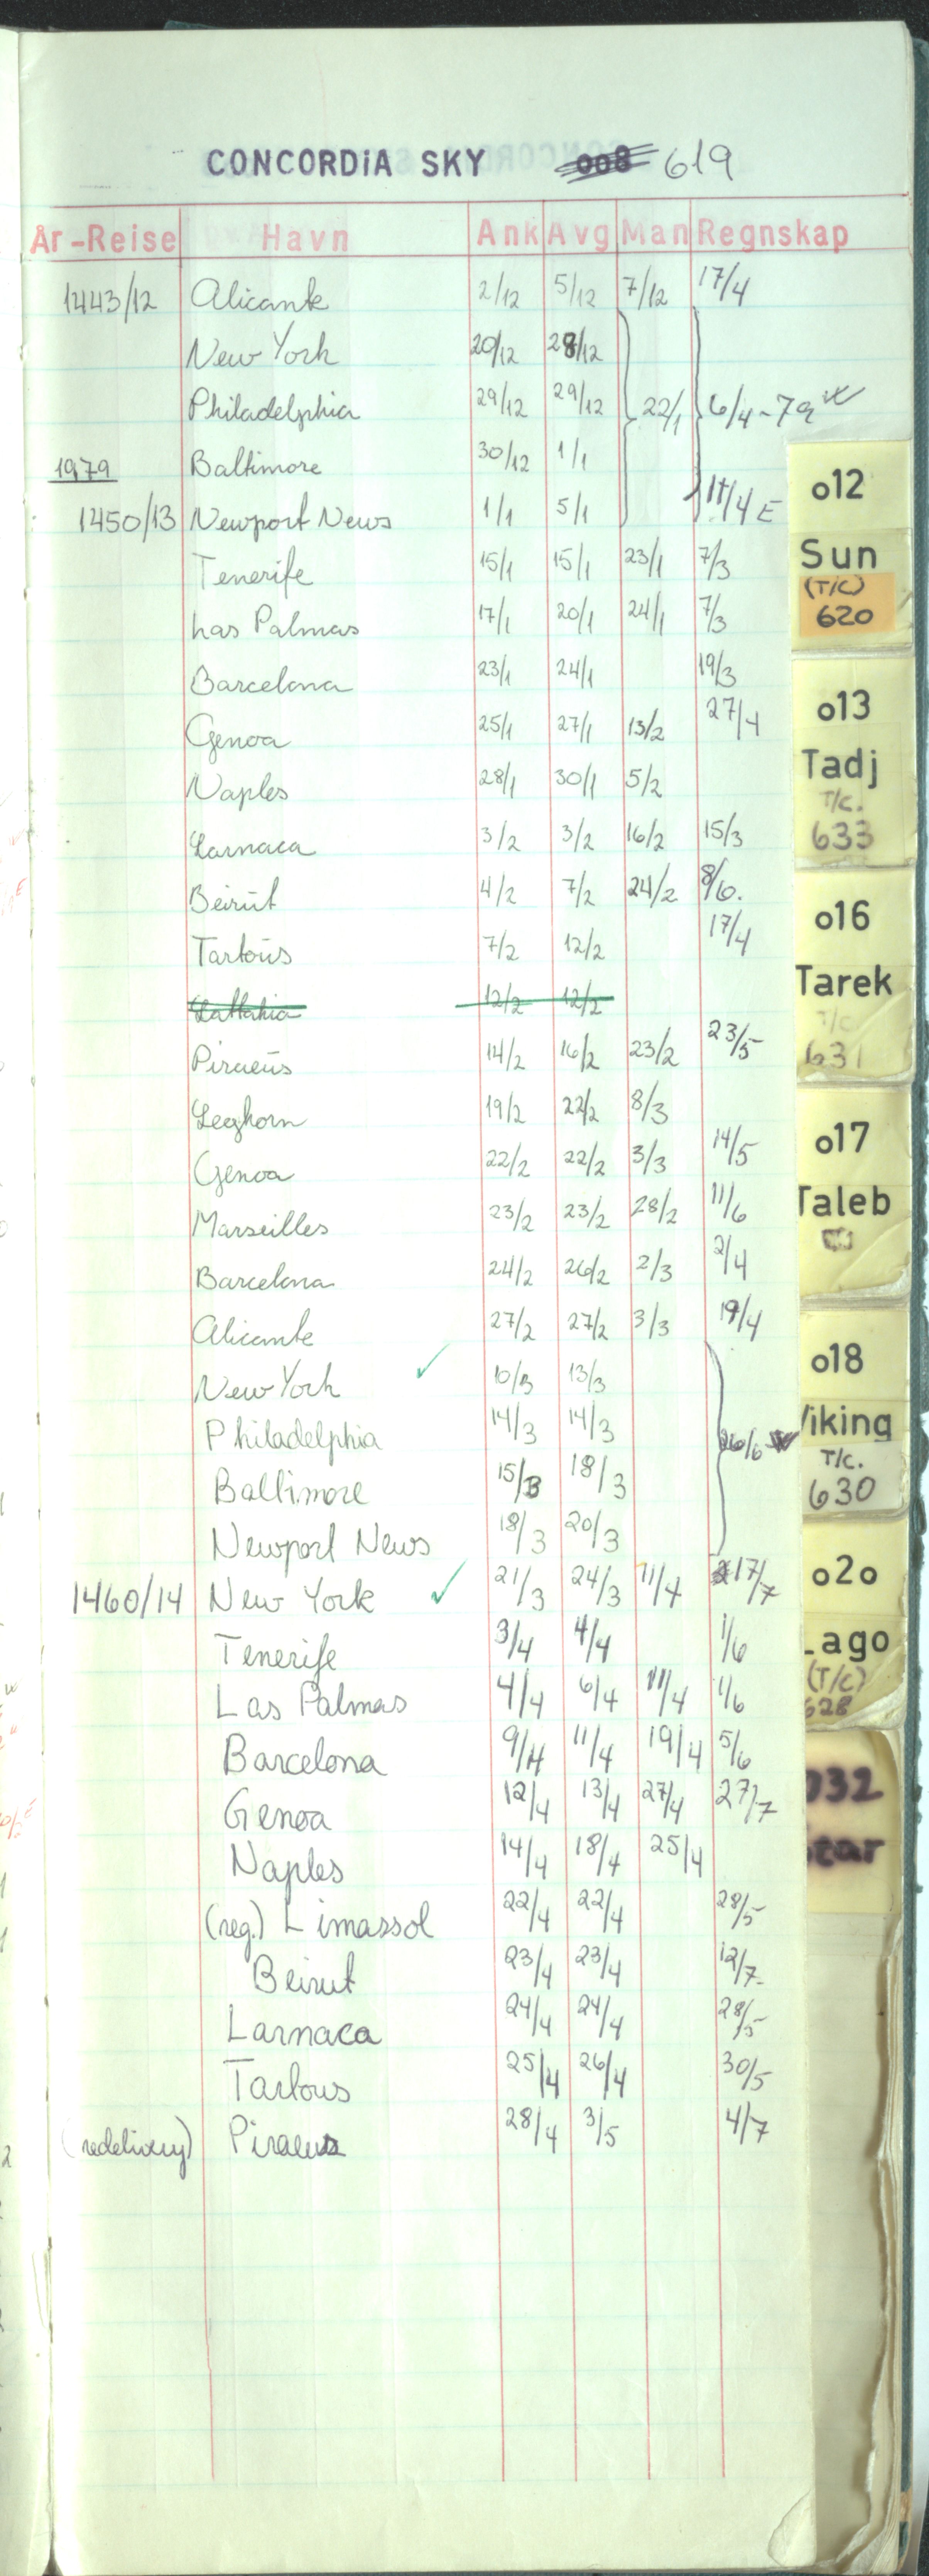 CONCORDIA SKY 008 619
År-Reise Havn Ank Avg Man Regnskap
1443/12 Alicante 2/12 5/12 7/12 17/4
New York 20/12 28/12
Philadelphia 29/12 29/12 22/1 6/4-79
1979 Baltimore 30/12 1/1
1450/13 Newport News 1/1 5/1 17/4 E
Tenerife 15/1 15/1 23/1 7/3
Las Palmas 17/1 20/1 24/1 7/3
Barcelona 23/1 24/1 19/3
Genoa 25/1 27/1 13/2 27/4
Naples 28/1 30/1 5/2
Larnaca 3/2 3/2 16/2 15/3
Beirut 4/2 7/2 24/2 8/6.
Tartous 7/2 12/2 17/4
Lattakia 12/2 12/2
Piraeus 14/2 16/2 23/2 23/5
Leghorn 19/2 22/2 8/3
Genoa 22/2 22/2 3/3 14/5
Marseilles 23/2 23/2 28/2 11/6
Barcelona 24/2 26/2 2/3 2/4
Alicante 27/2 27/2 3/3 19/4
New York ✓ 10/3 13/3
Philadelphia 14/3 14/3 26/6
Baltimore 15/3 18/3
Newport News 18/3 20/3
1460/14 New York ✓ 21/3 24/3 11/4 17/7
Tenerife 3/4 4/4 1/6
Las Palmas 4/4 6/4 11/4 1/6
Barcelona 9/4 11/4 19/4 5/6
Genoa 12/4 13/4 27/4 27/7
Naples 14/4 18/4 25/4
(reg.) Limassol 22/4 22/4 28/5
Beirut 23/4 23/4 12/7
Larnaca 24/4 24/4 28/5
Tartous 25/4 26/4 30/5
(redelivery) Piraeus 28/4 3/5 4/7
012
Sun
(T/C)
620
013
Tadj
T/C.
633
016
Tarek
T/C
631
017
Taleb
018
Viking
T/C.
630
020
Lago
(T/C)
628
032
Star